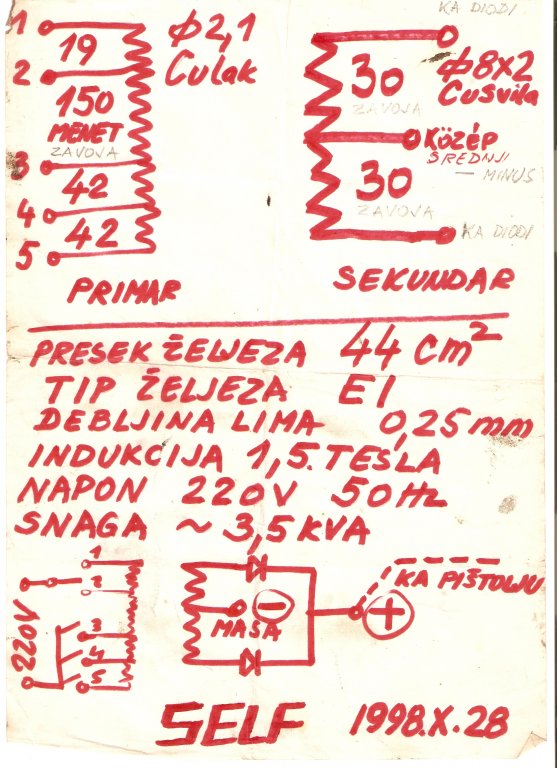 KA DIODI
1
19
2
150
MENET
ZAVOJA
3
42
4
42
5
PRIMAR
ϕ2,1
Culak
30
ZAVOJA
ϕ8x2
Cusvila
Közép
SREDNJI
— MINUS
30
ZAVOJA
KA DIODI
SEKUNDAR
PRESEK ŽELJEZA 44 cm²
TIP ŽELJEZA EI
DEBLJINA LIMA 0,25 mm
INDUKCIJA 1,5. TESLA
NAPON 220V 50Hz
SNAGA ~ 3,5 KVA
220V
1
2
3
4
5
MASA
−
+
KA PIŠTOLJU
SELF 1998.X.28